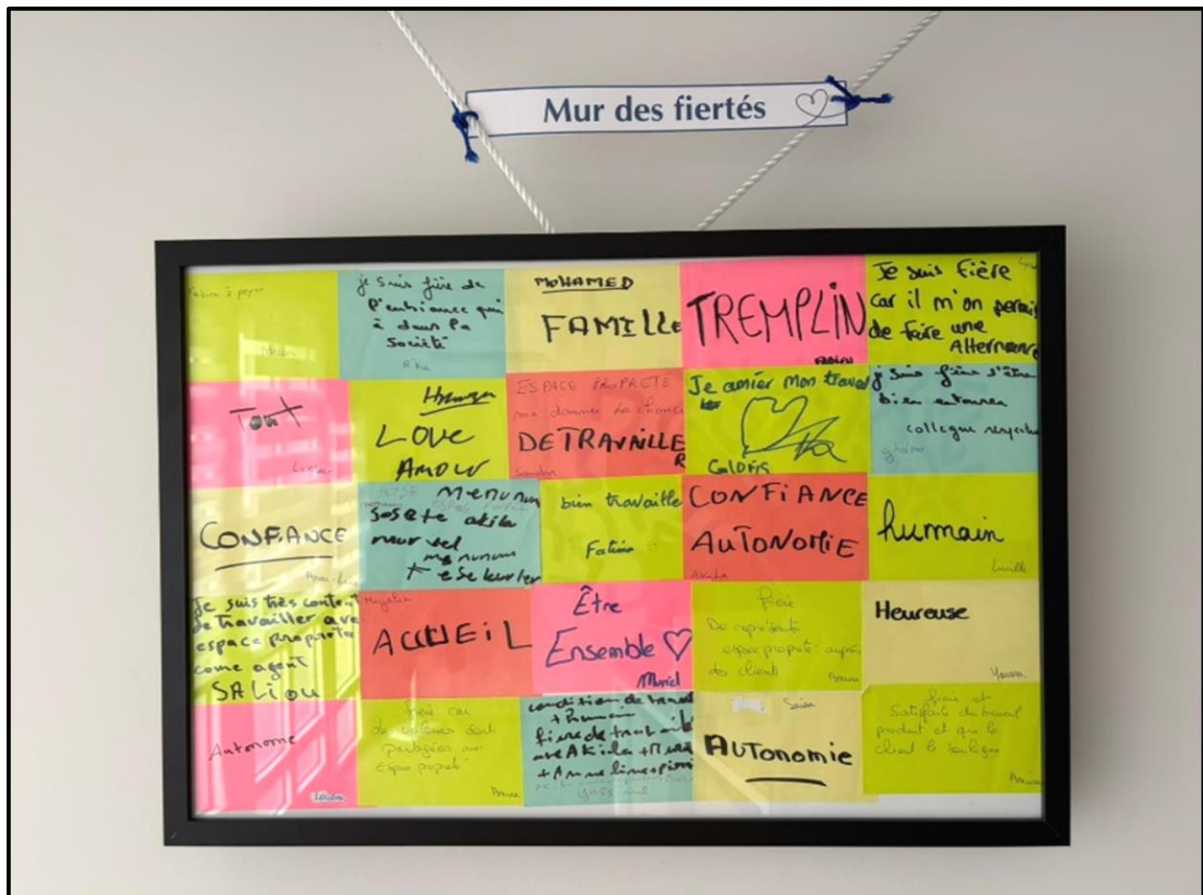 Mur des fiertés
je suis fière de
l'enbiance qui
à dans la
société
Rka
MOHAMED
FAMILLE
TREMPLIN
Je suis fière
car il m'on permis
de faire une
Alternance
Tout
LOVE
AMOUR
ESPACE PROPRETÉ
ma donner la chance
DE TRAVAILLE
R
Sandra
Je amier mon travail
je suis fière d'être
bien entourer
collegue respectu
CONFIANCE
bien travaille
Fatima
CONFIANCE
AUTONOMIE
Akila
humain
Lucille
Je suis très content
de travailler ave
espace proparte
come agent
SALIOU
Magalie
ACCUEIL
Être
Ensemble
Muriel
fière
De représenté
espace propreté auprès
des clients
Amina
Heureuse
Autonome
fière car
de valeurs sont
partagées sur
Espace propreté
condition de travail
+ humain
fière de travaille
avec Akila
Yassine
AUTONOMIE
fière et
Satisfaite du travail
produit et que le
client le souligne